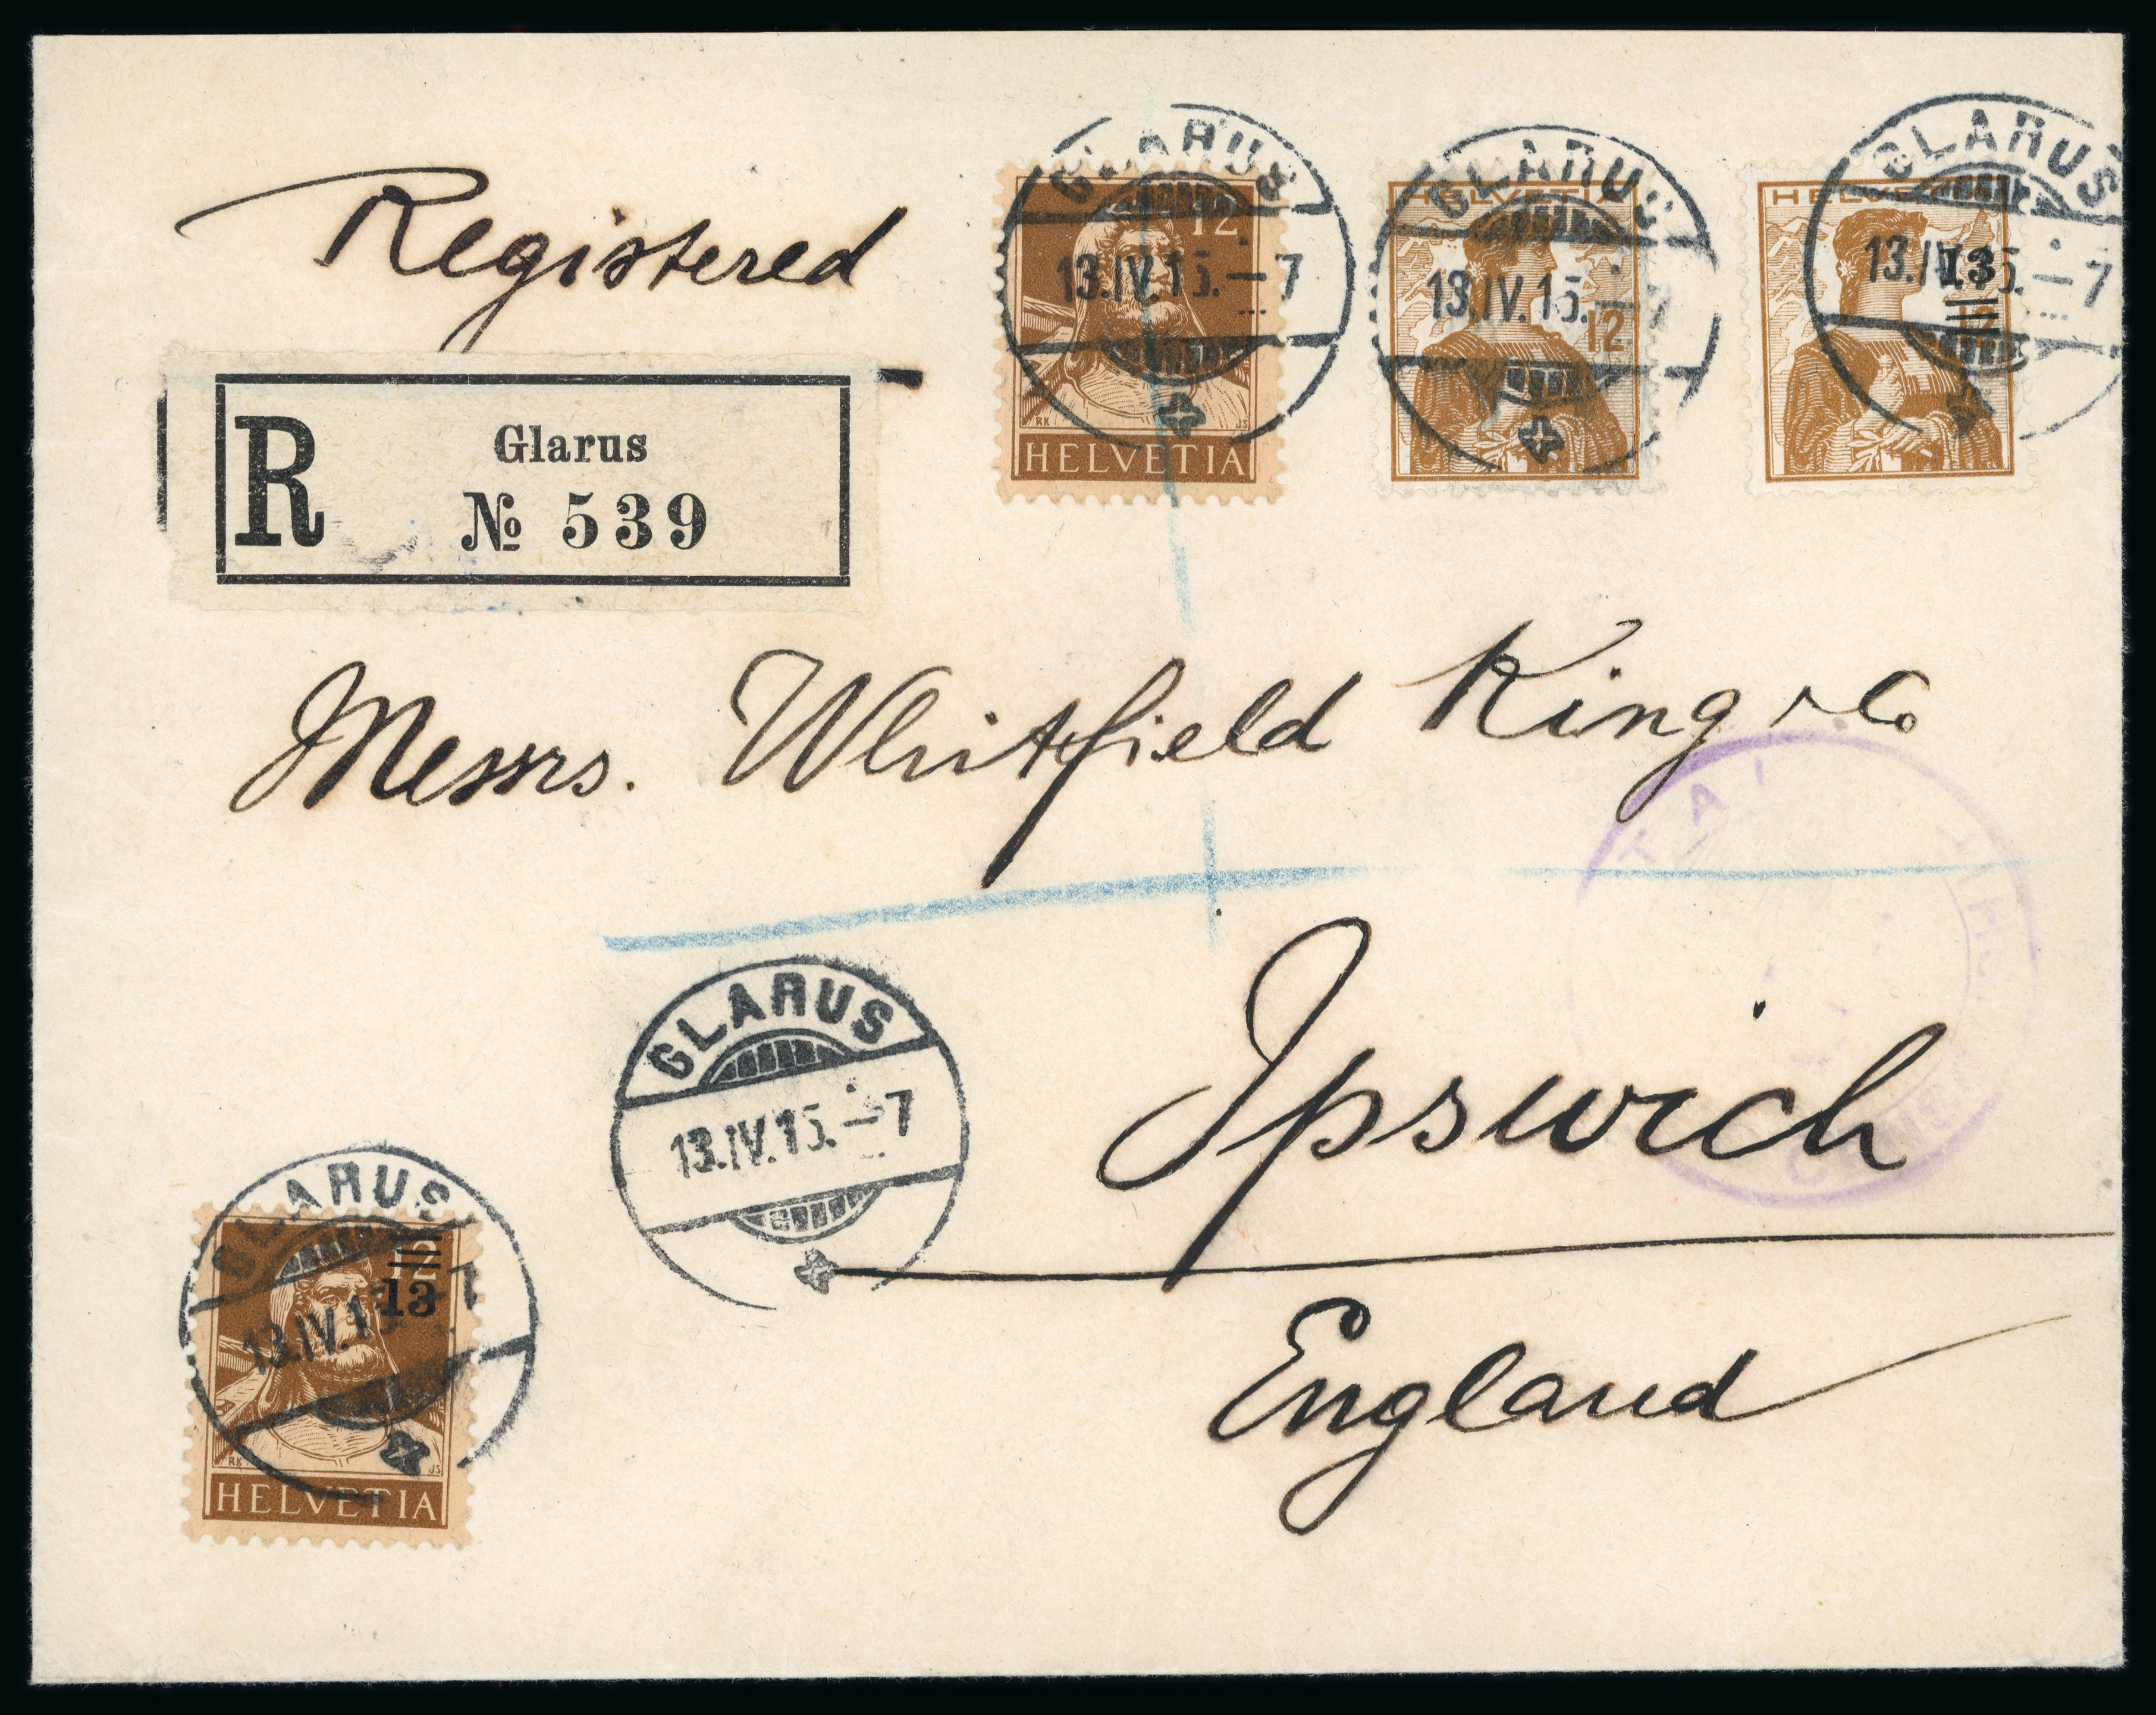 Registered
GLARUS
13.IV.15.–7
12
HELVETIA
GLARUS
HELVETIA
13.IV.15.–7
12
GLARUS
HELVETIA
13.IV.15.–7
13
12
R
Glarus
№ 539
Messrs. Whitfield King & Co
Ipswich
England
GLARUS
13.IV.15.–7
GLARUS
12
13
13.IV.15
RK JS
HELVETIA
RK JS